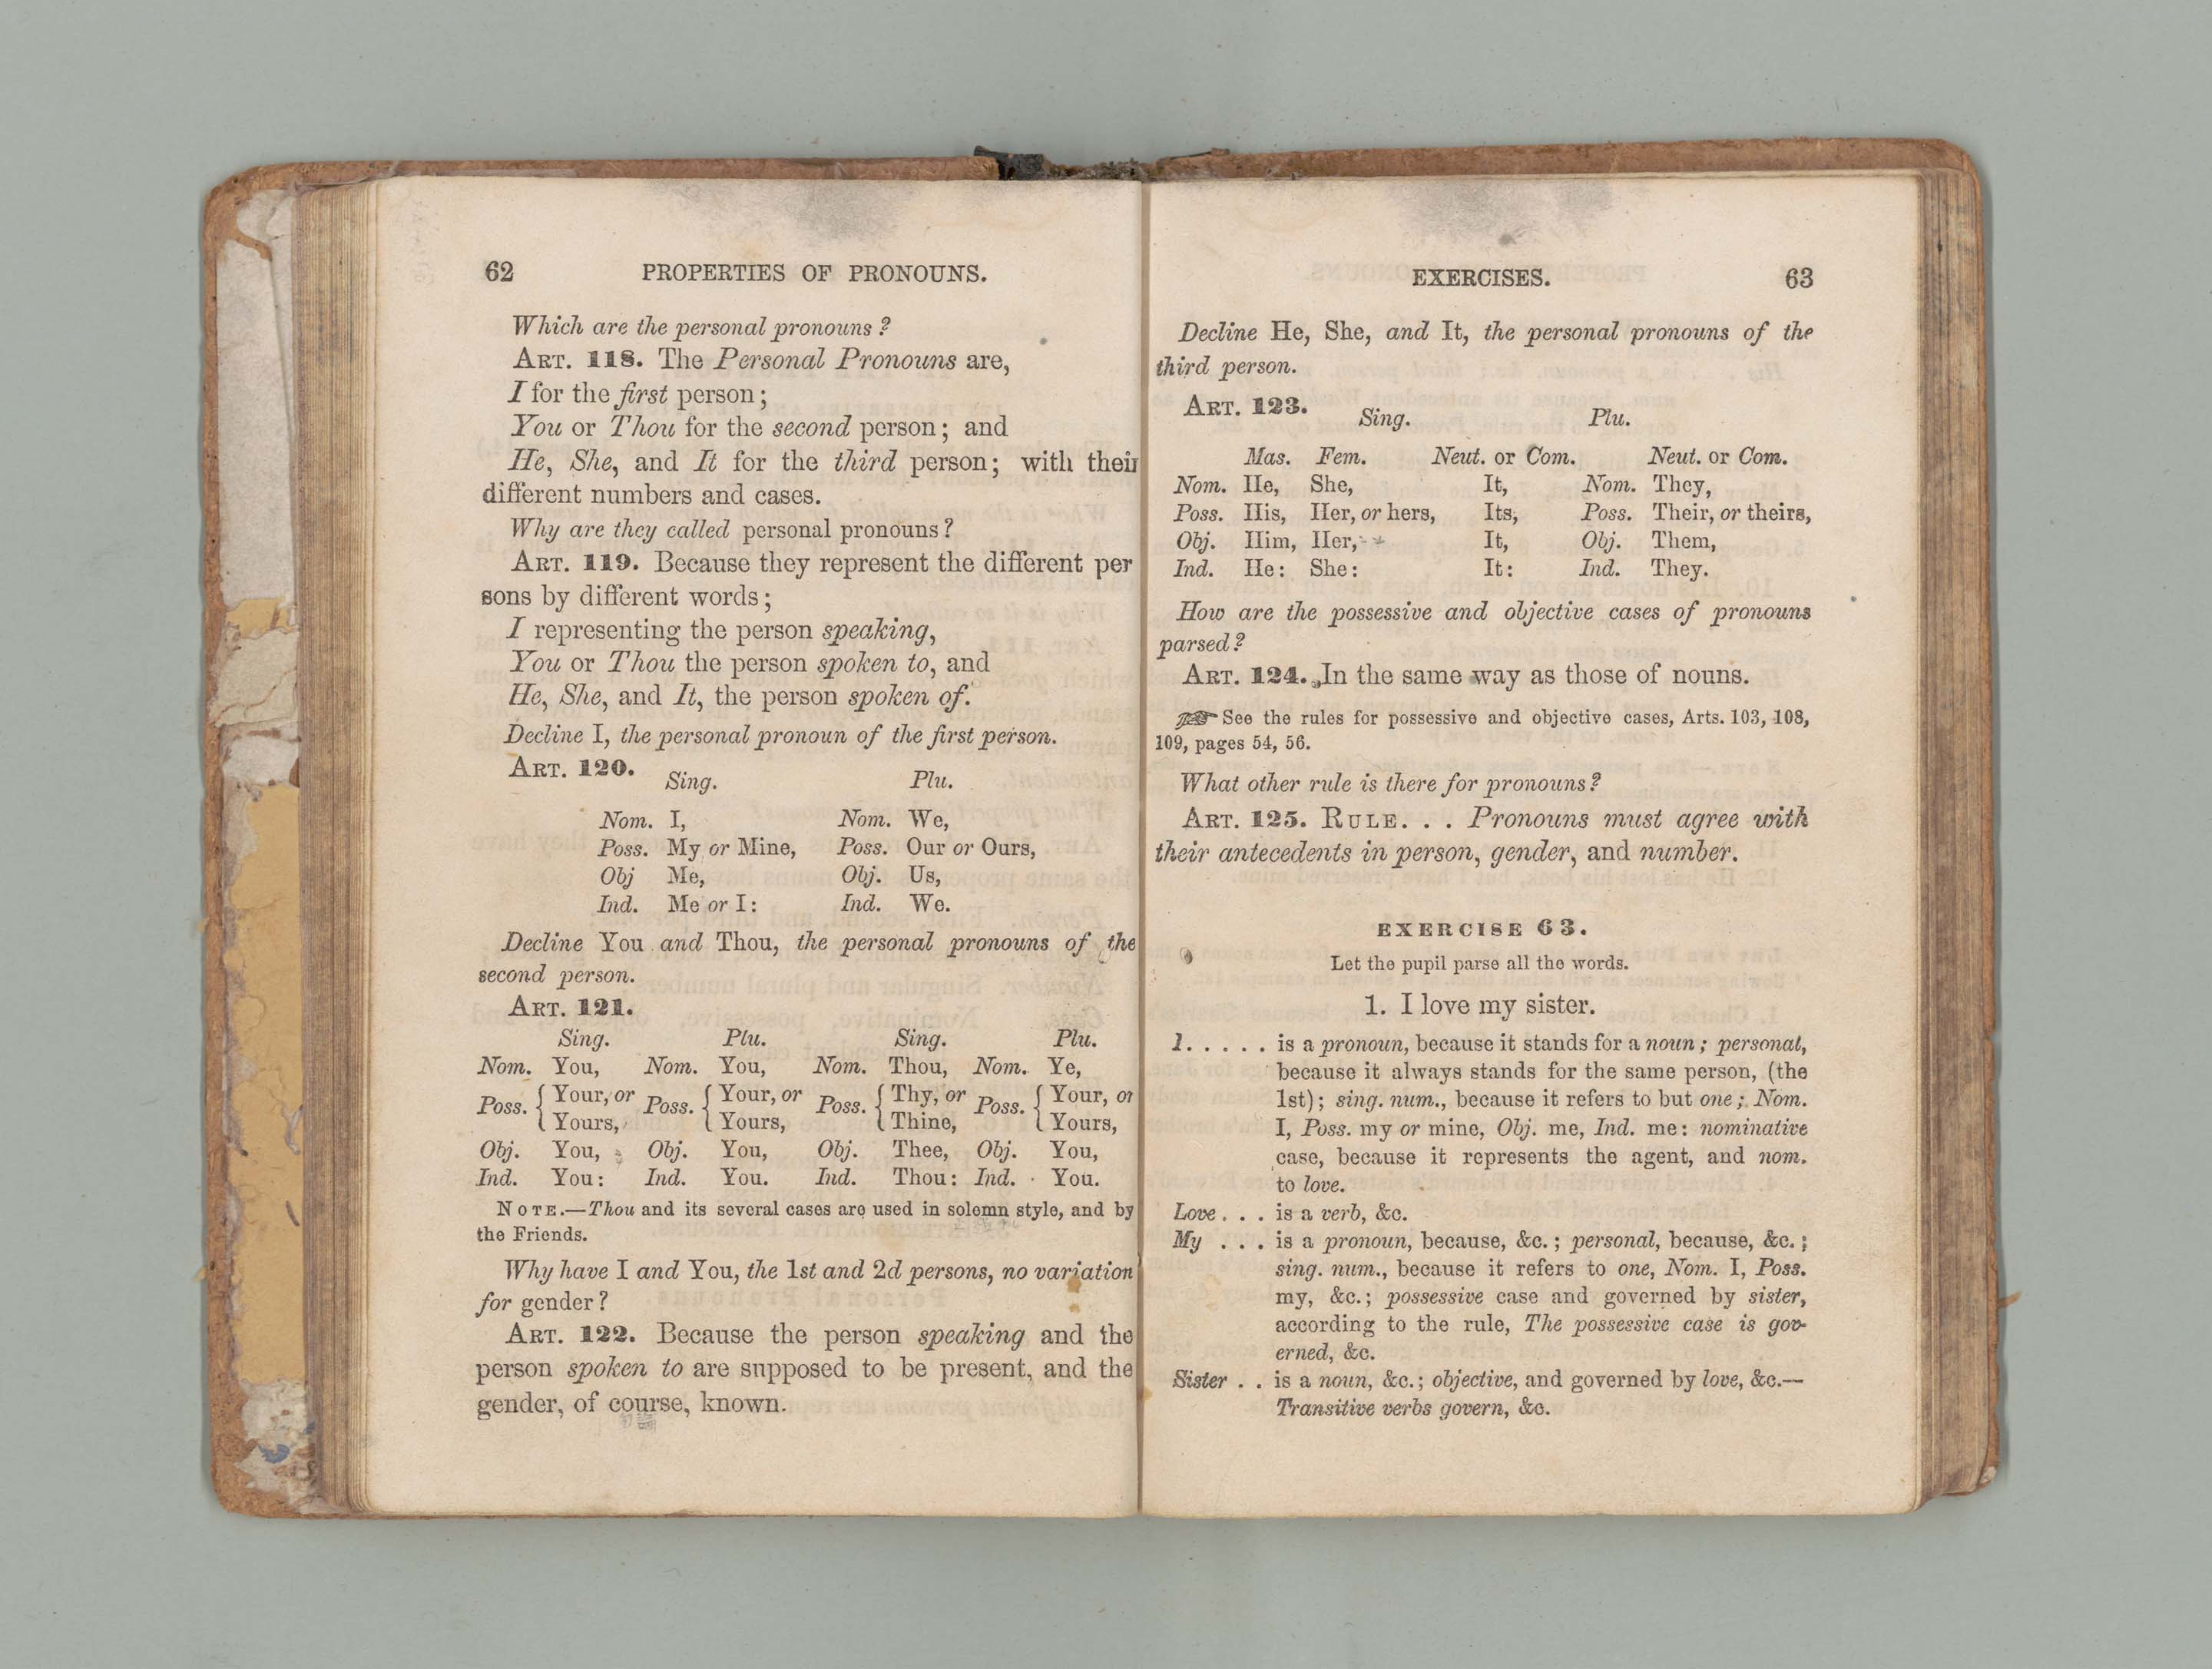 62 PROPERTIES OF PRONOUNS.
Which are the personal pronouns?
ART. 118. The Personal Pronouns are,
I for the first person;
You or Thou for the second person; and
He, She, and It for the third person; with their
different numbers and cases.
Why are they called personal pronouns?
ART. 119. Because they represent the different per
sons by different words;
I representing the person speaking,
You or Thou the person spoken to, and
He, She, and It, the person spoken of.
Decline I, the personal pronoun of the first person.
ART. 120. Sing. Plu.
Nom. I, Nom. We,
Poss. My or Mine, Poss. Our or Ours,
Obj Me, Obj. Us,
Ind. Me or I: Ind. We.
Decline You and Thou, the personal pronouns of the
second person.
ART. 121.
Sing. Plu. Sing. Plu.
Nom. You, Nom. You, Nom. Thou, Nom. Ye,
Poss. { Your, or Poss. { Your, or Poss. { Thy, or Poss. { Your, or
Yours, Yours, Thine, Yours,
Obj. You, Obj. You, Obj. Thee, Obj. You,
Ind. You: Ind. You. Ind. Thou: Ind. You.
NOTE.—Thou and its several cases are used in solemn style, and by
the Friends.
Why have I and You, the 1st and 2d persons, no variation
for gender?
ART. 122. Because the person speaking and the
person spoken to are supposed to be present, and the
gender, of course, known.
EXERCISES. 63
Decline He, She, and It, the personal pronouns of the
third person.
ART. 123. Sing. Plu.
Mas. Fem. Neut. or Com. Neut. or Com.
Nom. He, She, It, Nom. They,
Poss. His, Her, or hers, Its, Poss. Their, or theirs,
Obj. Him, Her, It, Obj. Them,
Ind. He: She: It: Ind. They.
How are the possessive and objective cases of pronouns
parsed?
ART. 124. In the same way as those of nouns.
☞ See the rules for possessive and objective cases, Arts. 103, 108,
109, pages 54, 56.
What other rule is there for pronouns?
ART. 125. RULE. . . Pronouns must agree with
their antecedents in person, gender, and number.
EXERCISE 63.
Let the pupil parse all the words.
1. I love my sister.
I. . . . . is a pronoun, because it stands for a noun; personal,
because it always stands for the same person, (the
1st); sing. num., because it refers to but one; Nom.
I, Poss. my or mine, Obj. me, Ind. me: nominative
case, because it represents the agent, and nom.
to love.
Love . . . is a verb, &c.
My . . . is a pronoun, because, &c.; personal, because, &c.;
sing. num., because it refers to one, Nom. I, Poss.
my, &c.; possessive case and governed by sister,
according to the rule, The possessive case is gov-
erned, &c.
Sister . . is a noun, &c.; objective, and governed by love, &c.—
Transitive verbs govern, &c.